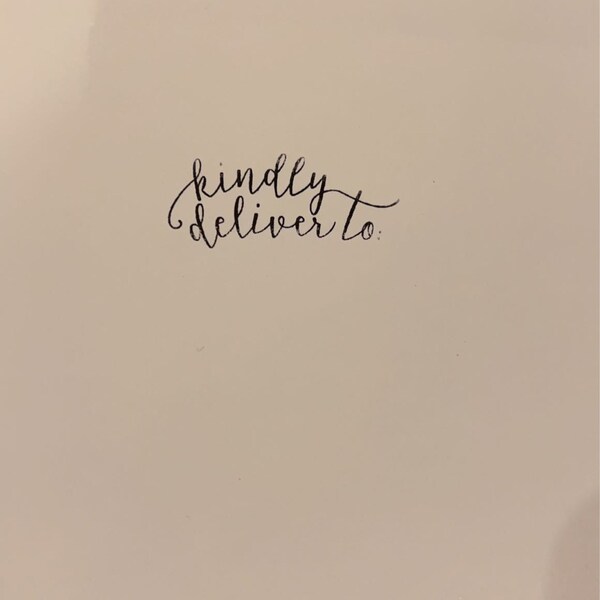 kindly
deliver to: